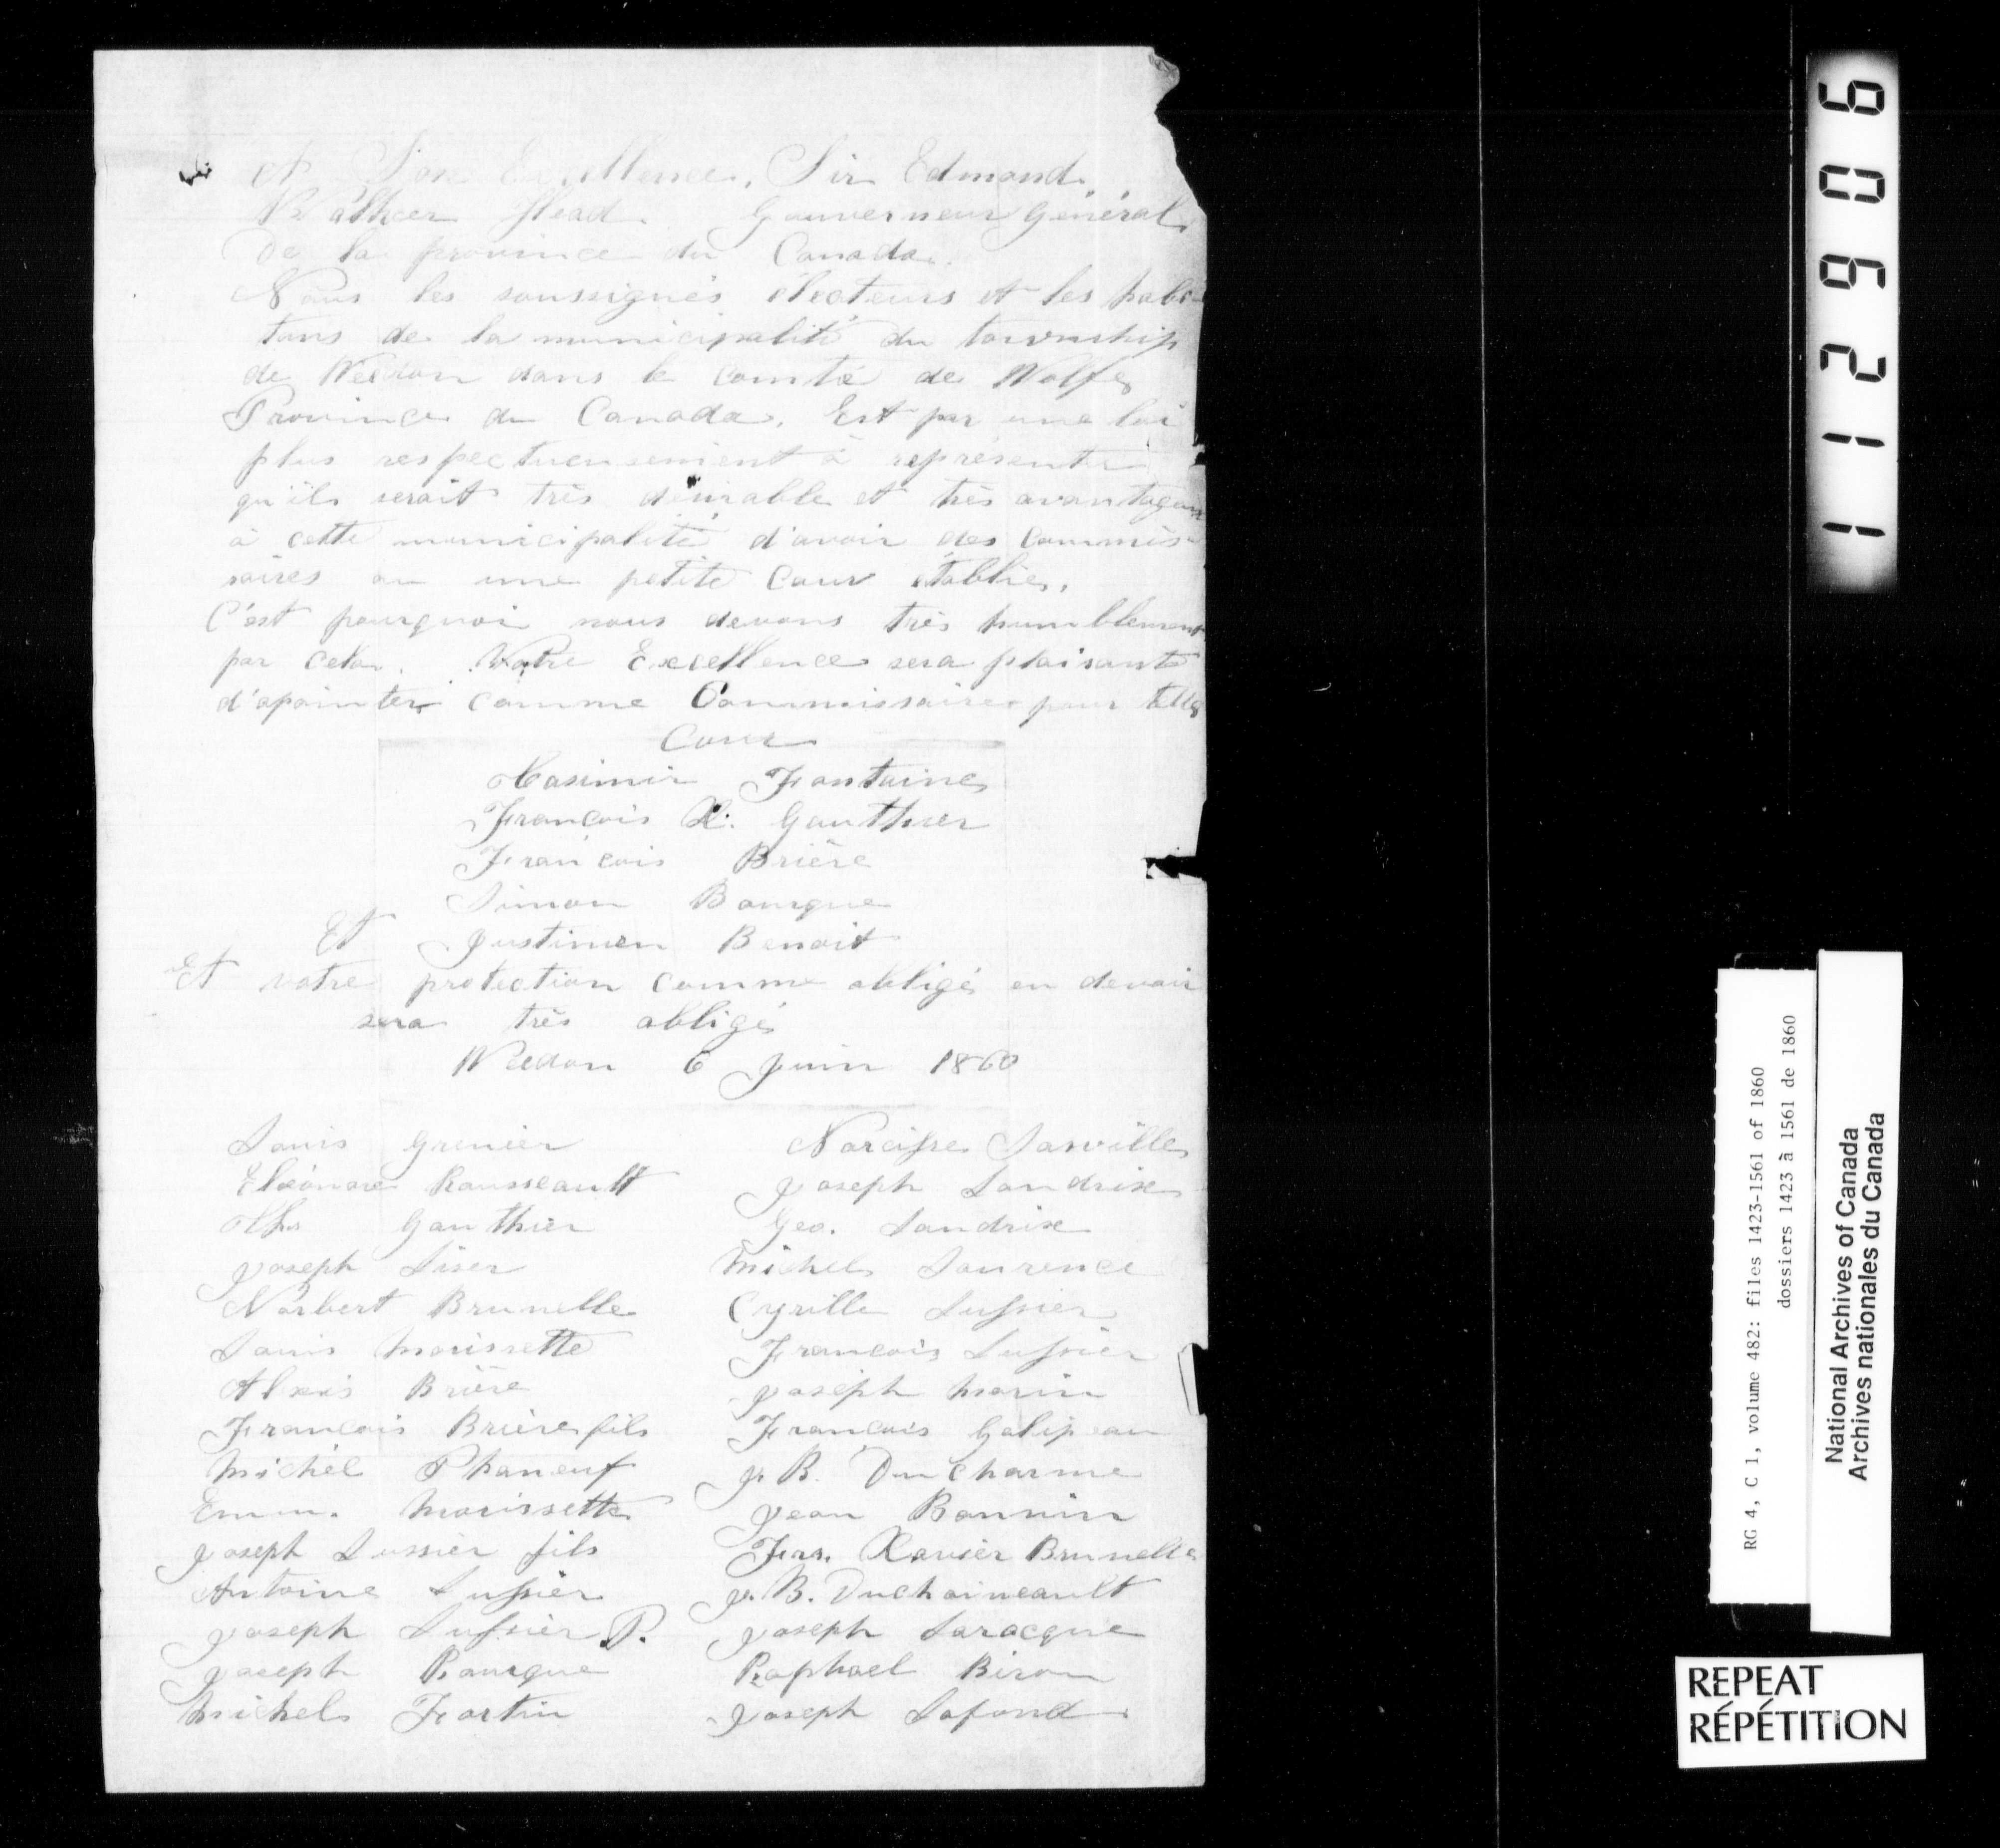 A Son Excellence, Sir Edmond
Walker Head. Gouverneur Général
De la province du Canada.
Nous les soussignés électeurs et les habi-
tans de la municipalité du township
de Weedon dans le comté de Wolfe
Province du Canada. Est par une loi
plus respectueusement à représenter
qu'ils serait très désirable et très avantageux
à cette municipalité d'avoir des Commis-
saires ou une petite Cour établie.
C'est pourquoi nous devons très humblement
par cela. Votre Excellence sera plaisante
d'apointer comme Commissaires pour telle
Cour
Casimir Fontaine
François X. Gauthier
François Brière
Simon Bourque
Et Justinien Benoit
Et votre protection comme obligé en devoir
sera très obligé
Weedon 6 Juin 1860
Louis Grenier
Eléonore Rousseault
Gauthier
Joseph Siser
Norbert Brunelle
Louis Morissette
Alexis Brière
François Brière fils
Michel Phaneuf
Emm. Morissette
Joseph Lussier fils
Antoine Lussier
Joseph Lussier P.
Joseph Bourque
Michel Fortin
Narcisse
Joseph Landrie
Geo. Landrie
Michel Laurence
Cyrille Lussier
François Lussier
Joseph Morin
François Galipeau
J. B. DuCharme
Jean Bonnin
Frs. Xavier Brunelle
J. B. Duchaineault
Joseph Laracque
Raphael Biron
Joseph Lafond
112906
RG 4, C 1, volume 482: files 1423-1561 of 1860
dossiers 1423 à 1561 de 1860
National Archives of Canada
Archives nationales du Canada
REPEAT
RÉPÉTITION